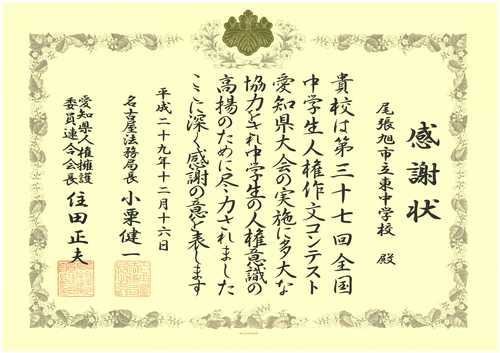 感謝状
尾張旭市立東中学校 殿
貴校は第三十七回全国
中学生人権作文コンテスト
愛知県大会の実施に多大な
協力をされ中学生の人権意識の
高揚のために尽力されました
ここに深く感謝の意を表します
平成二十九年十二月十六日
名古屋法務局長 小栗健一
愛知県人権擁護
委員連合会長 住田正夫